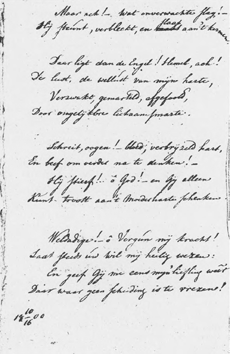 Maar ach! – wat onverwachte slag! –
Hij steunt, verbleekt, en slaat aan 't kermen

Daar ligt dan de Engel! Stom, ach!
De lust, de wellust van mijn harte,
Verzwakt, gemarteld, afgesold,
Door ongelijkbre lichaamsmarte.

Schreit, oogen! – bloed, verbrijzeld hart,
En beef om verder na te denken! –
Hij stierf! – ô God! – en Gij alleen
Kunt troost aan 't Moederharte schenken

Weldadige! – ô Vergun mij kracht!
Laat steeds uw wil mij heilig wezen:
En geef Gij me eens mijn lieveling weêr
Daar waar geen scheiding is te vreezen!

18 10/16 00